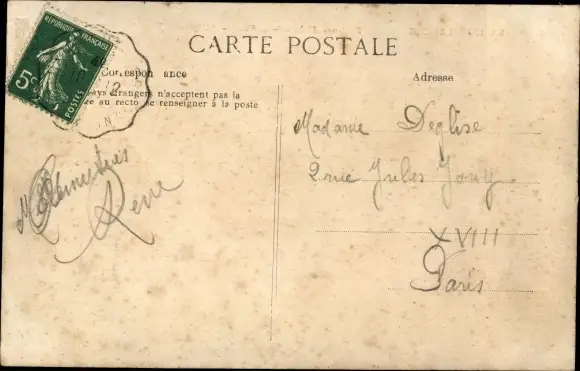 RÉPUBLIQUE FRANÇAISE
5c
POSTES
CARTE POSTALE
Correspon ance
ays étrangers n'acceptent pas la
e au recto se renseigner à la poste
René
Adresse
Madame Déglise
2 rue Jules Jouy
XVIII
Paris